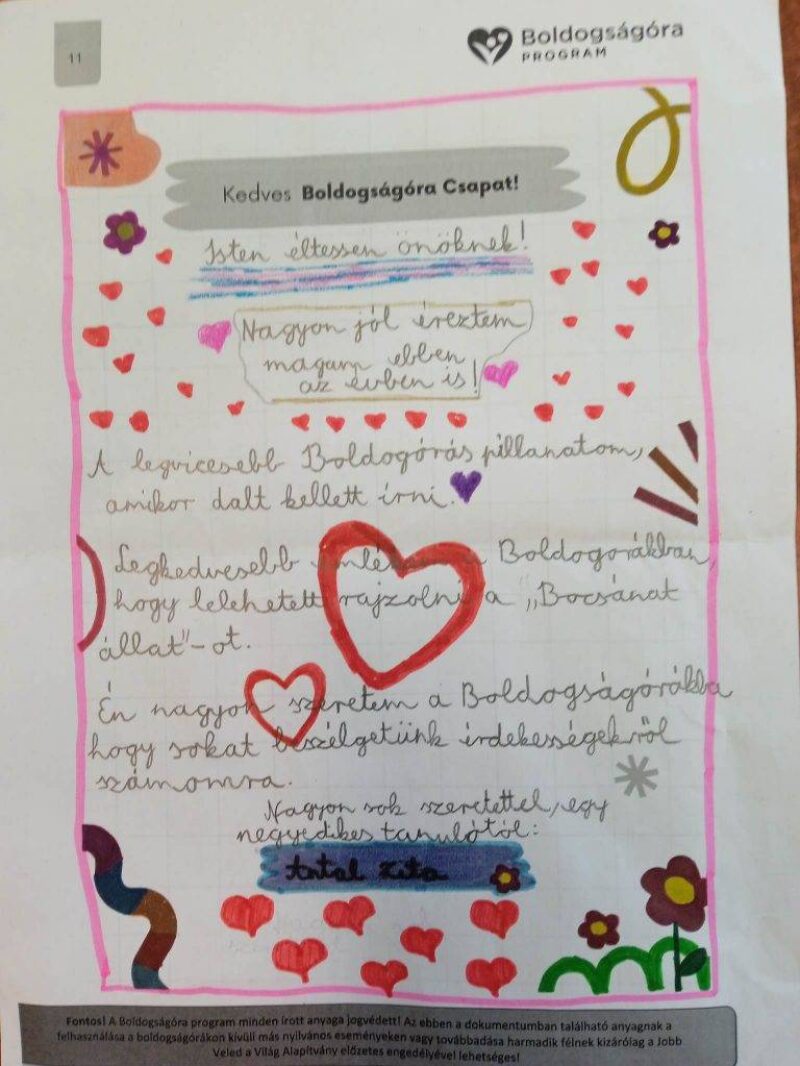 11
Boldogságóra
PROGRAM
Kedves Boldogságóra Csapat!
Isten éltessen önöknek!
Nagyon jól éreztem
magam ebben
az évben is!
A legviccesebb Boldogórás pillanatom,
amikor dalt kellett írni.
Legkedvesebb a Boldogorákban,
hogy lelehetett rajzolni a "Bocsánat
állat"-ot.
Én nagyon szeretem a Boldogságórákba
hogy sokat beszélgetünk érdekességekről
számomra.
Nagyon sok szeretettel, egy
negyedikes tanulótól:
Antal Zita
Fontos! A Boldogságóra program minden írott anyaga jogvédett! Az ebben a dokumentumban található anyagnak a
felhasználása a boldogságórákon kívüli más nyilvános eseményeken vagy továbbadása harmadik félnek kizárólag a Jobb
Veled a Világ Alapítvány előzetes engedélyével lehetséges!